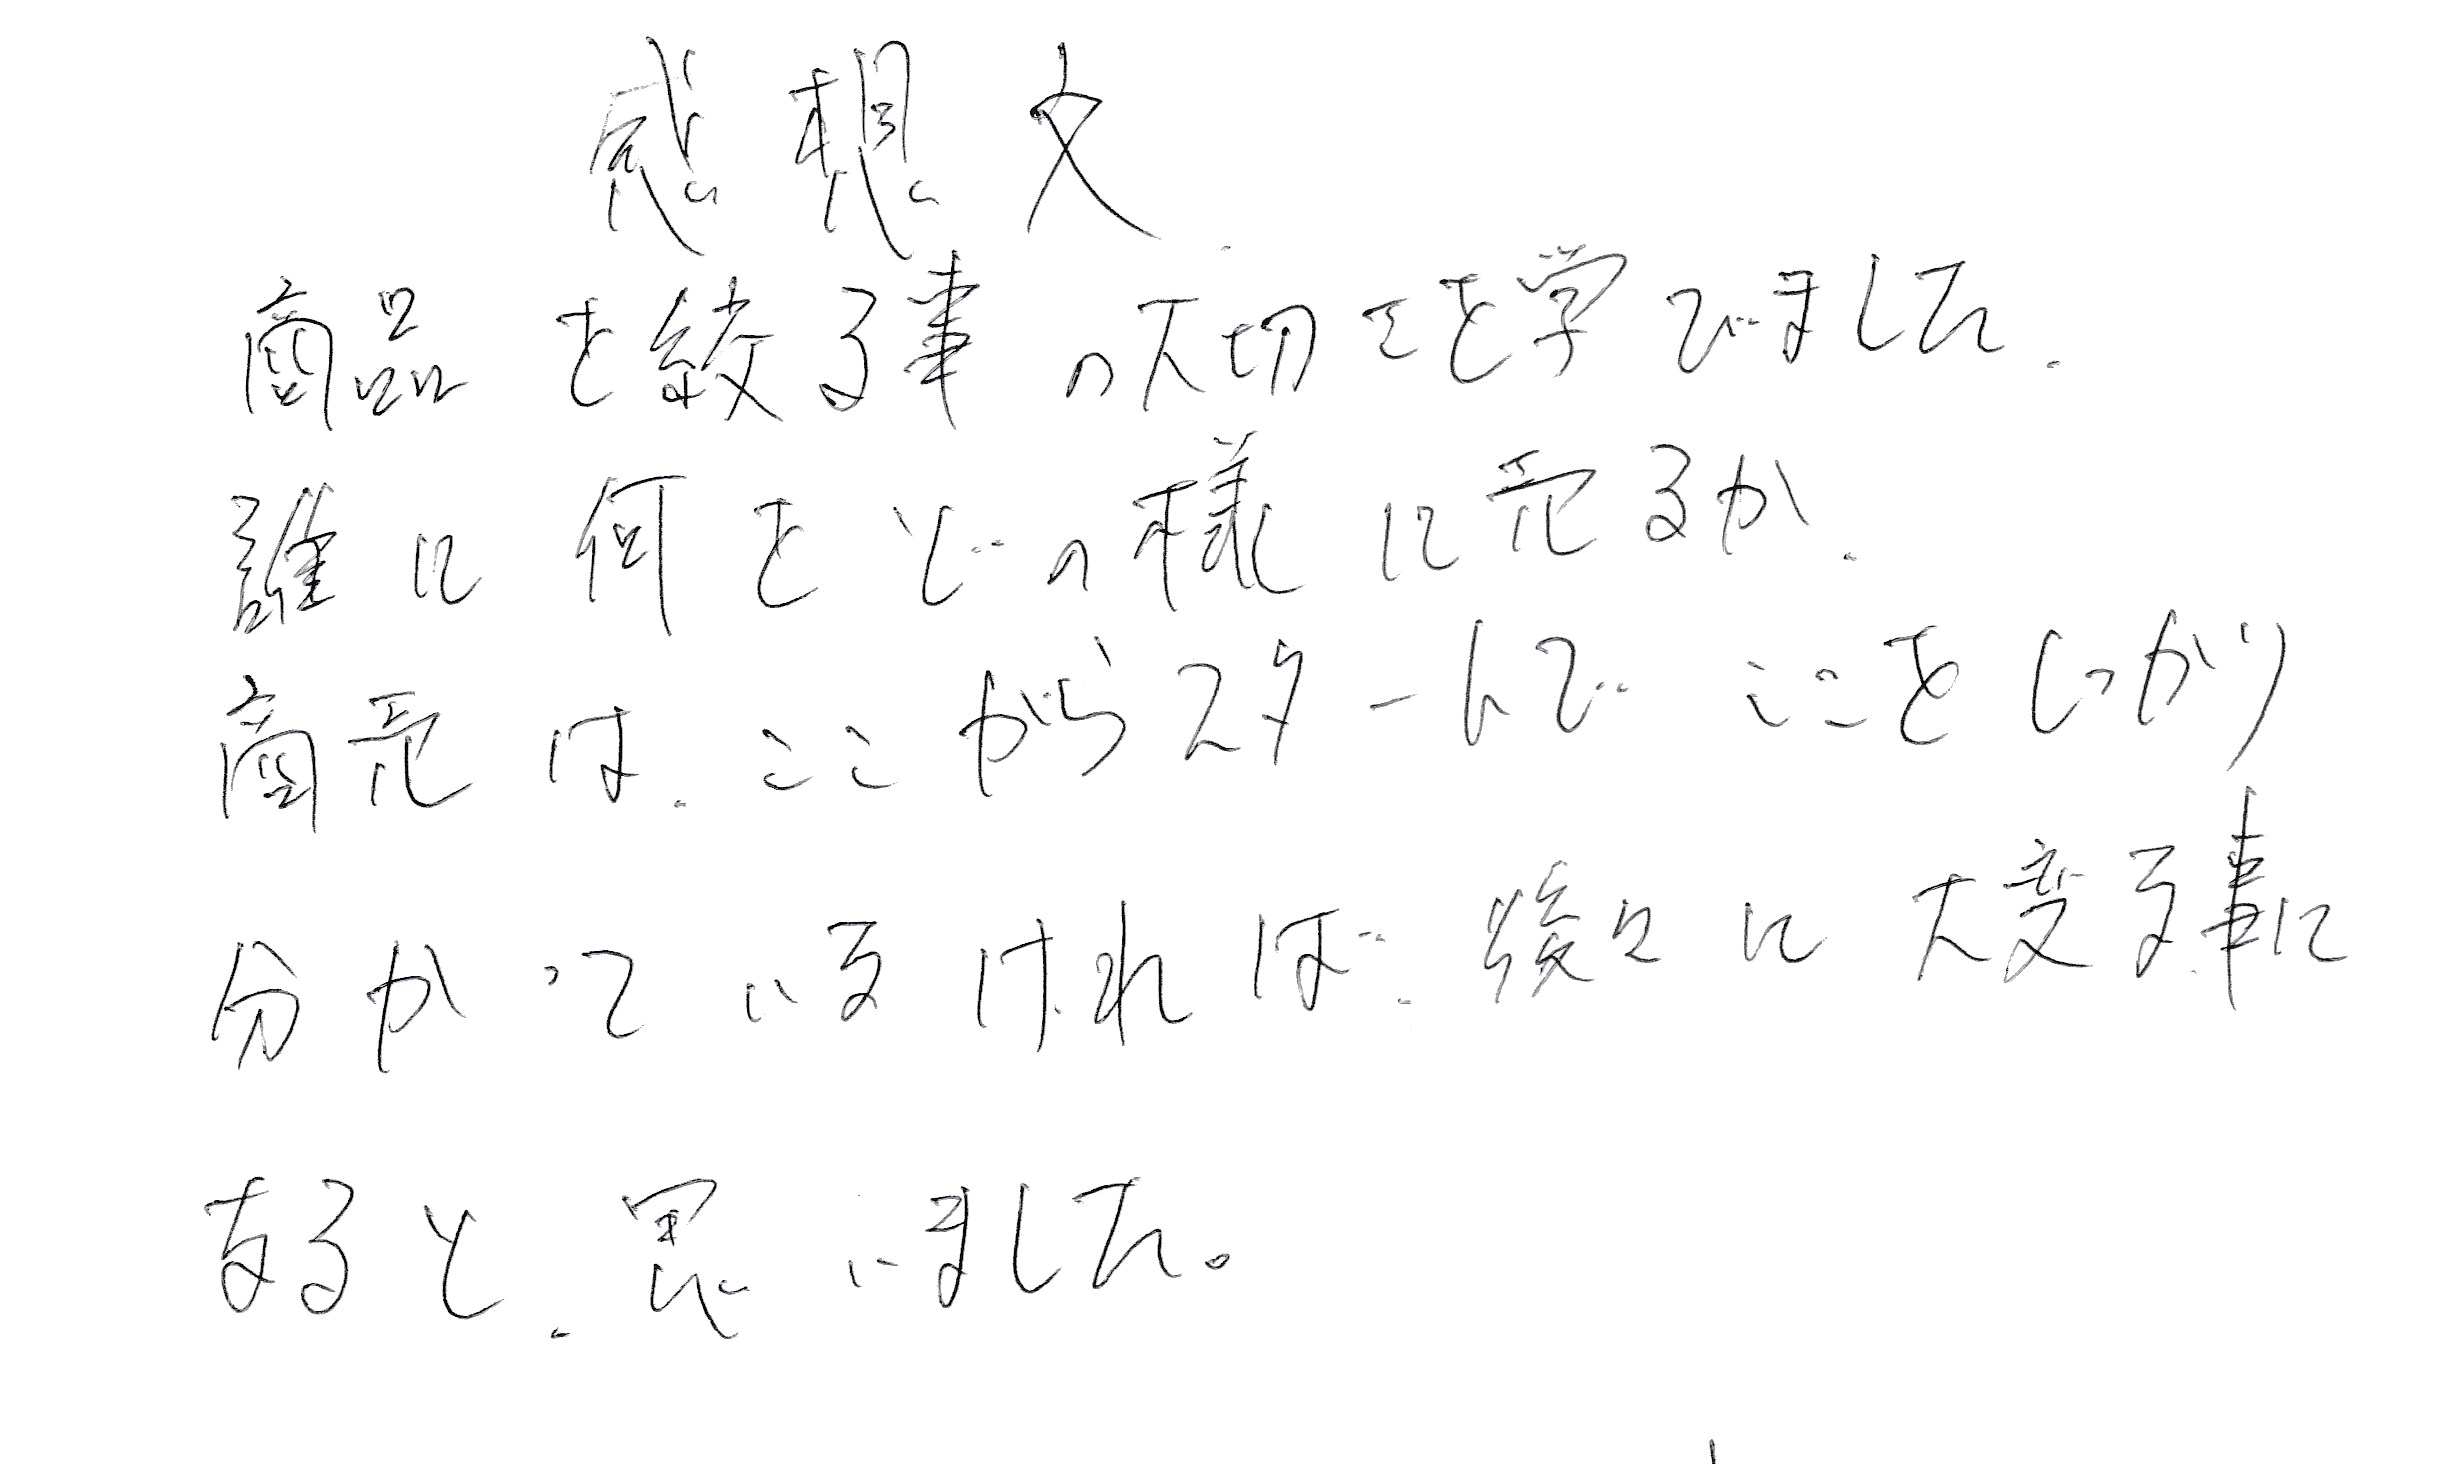 感想文
商品を絞る事の大切さを学びました。
誰に何をどの様に売るか。
商売は、ここからスタートで ここをしっかり
分かっていなければ、後々に大変な事に
なると、思いました。